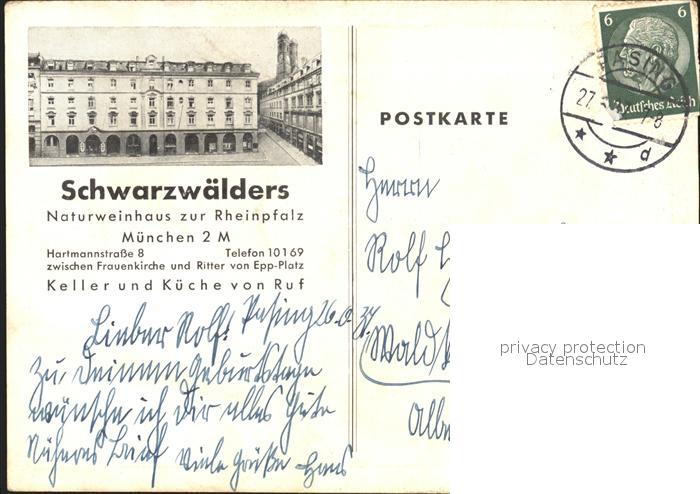 Schwarzwälders
Naturweinhaus zur Rheinpfalz
München 2 M
Hartmannstraße 8 Telefon 10169
zwischen Frauenkirche und Ritter von Epp-Platz
Keller und Küche von Ruf
Pasing 26.
Lieber Rolf!
Zu Deinem Geburtstage
wünsche ich Dir alles Gute
Näheres Brief
Viele Grüße Hans
POSTKARTE
6 6
Deutsches Reich
PASING
27.
7-8
d
Herrn
Rolf
Wald
privacy protection
Datenschutz